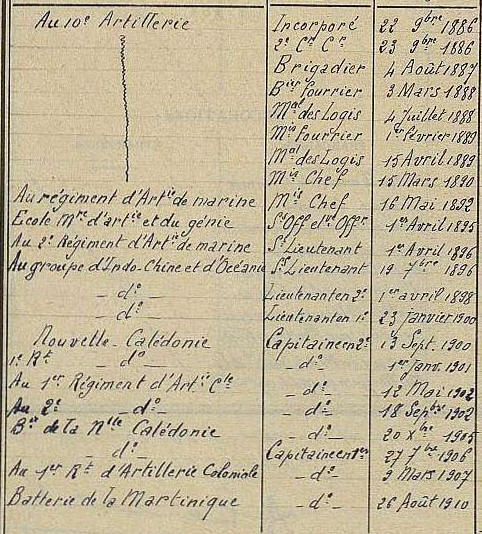 Au 10e Artillerie Incorporé 22 9bre 1886
2e Cr Cr 23 9bre 1886
Brigadier 4 Août 1887
Bier fourrier 3 Mars 1888
Mal des Logis 4 Juillet 1888
Mis fourrier 1er février 1889
Mal des Logis 15 Avril 1889
Mis Chef 15 Mars 1890
Au régiment d'Artie de marine Mis Chef 16 Mai 1892
Ecole Mre d'artie et du génie S/Off et Offr 1er Avril 1895
Au 2e Régiment d'Artie de marine S/Lieutenant 1er Avril 1896
Au groupe d'Indo-Chine et d'Océanie S/Lieutenant 19 7bre 1896
- do - Lieutenant en 2e 1er avril 1898
- do - Lieutenant en 1er 23 Janvier 1900
Nouvelle-Calédonie Capitaine en 2e 13 Sept. 1900
1er Rt - do - - do - 1er Janv. 1901
Au 1er Régiment d'Artie Cle - do - 12 Mai 1902
Au 2e - do - - do - 18 Sepbre 1902
Bie de la Nlle Calédonie - do - 20 Xbre 1905
- do - Capitaine en 1er 27 7bre 1906
Au 1er Rt d'Artillerie Coloniale - do - 9 Mars 1907
Batterie de la Martinique - do - 26 Août 1910